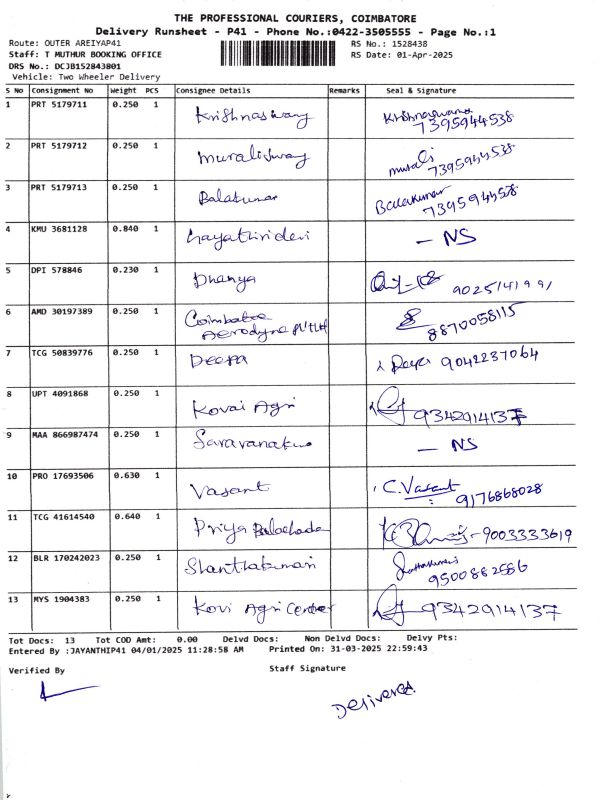 THE PROFESSIONAL COURIERS, COIMBATORE
Delivery Runsheet - P41 - Phone No.:0422-3505555 - Page No.:1
Route: OUTER AREIYAP41 RS No.: 1528438
Staff: T MUTHUR BOOKING OFFICE RS Date: 01-Apr-2025
DRS No.: DCJB152843801
Vehicle: Two Wheeler Delivery
S No Consignment No Weight PCS Consignee Details Remarks Seal & Signature
1 PRT 5179711 0.250 1 Krishnaswamy Krishnaswamy
7395944538
2 PRT 5179712 0.250 1 Muraliswamy murali
7395944538
3 PRT 5179713 0.250 1 Balakumar Balakumar
7395944538
4 KMU 3681128 0.840 1 Gayathiridevi - NS
5 DPI 578846 0.230 1 Dhanya 9025141991
6 AMD 30197389 0.250 1 Coimbatore
Aerodyne Pvt Ltd 8870058115
7 TCG 50839776 0.250 1 Deepa 9042237064
8 UPT 4091868 0.250 1 Kovai Agri 9342914137
9 MAA 866987474 0.250 1 Saravanakum - NS
10 PRO 17693506 0.630 1 Vasant C. Vasant
9176868028
11 TCG 41614540 0.640 1 Priya Balachada - 9003333619
12 BLR 170242023 0.250 1 Shanthakumari Shanthakumari
9500882586
13 MYS 1904383 0.250 1 Kovi Agri Center 9342914137
Tot Docs: 13 Tot COD Amt: 0.00 Delvd Docs: Non Delvd Docs: Delvy Pts:
Entered By :JAYANTHIP41 04/01/2025 11:28:58 AM Printed On: 31-03-2025 22:59:43
Verified By Staff Signature
Delivered